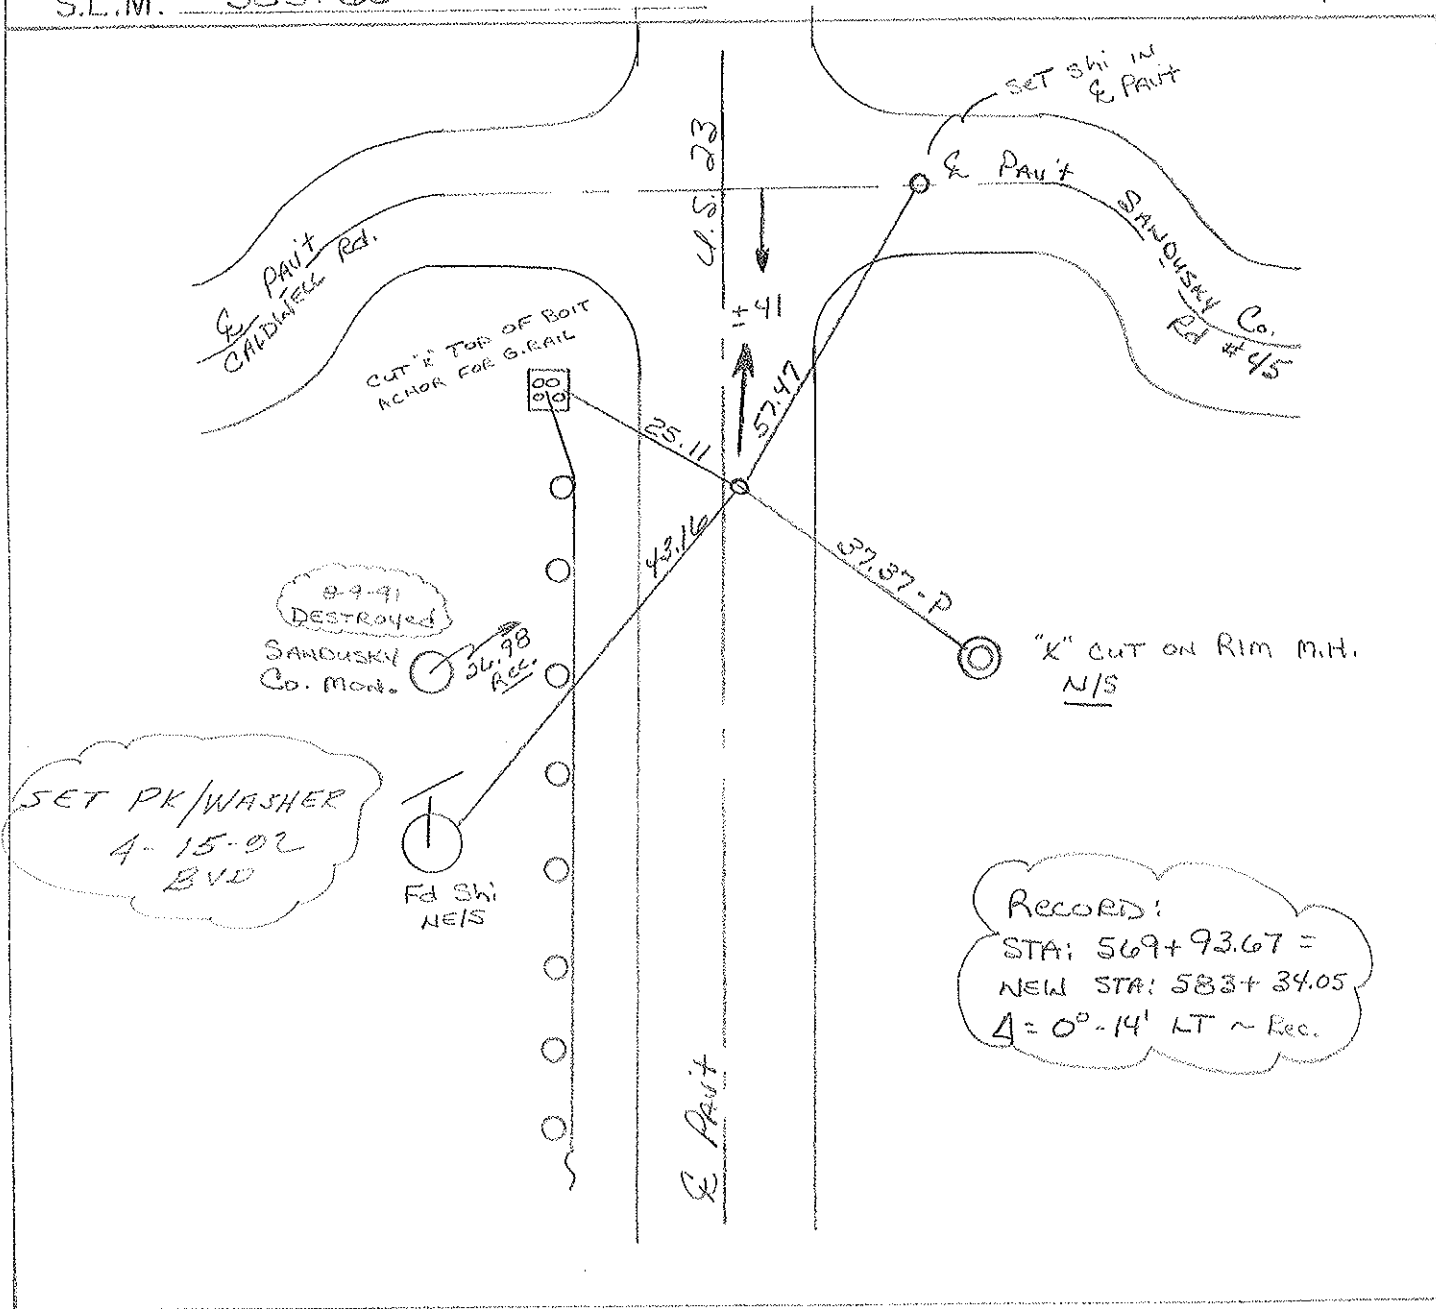 S.L.M.
SET Shi IN
℄ PAV't
U.S. 23
℄ PAV't
SANDUSKY Co.
Rd #45
℄ PAV't
CALDWELL Rd.
1+41
CUT "X" TOP OF BOIT
ACHOR FOR G.RAIL
57.47
25.11
43.16
37.37-P
8-9-91
DESTROYed
SANDUSKY
Co. MON.
26.98
REC.
"X" CUT ON RIM M.H.
N/S
SET PK/WASHER
4-15-92
BVD
Fd Shi
NE/S
RECORD:
STA: 569+93.67 =
NEW STA: 583+34.05
Δ = 0°-14' LT ~ Rec.
℄ PAV't